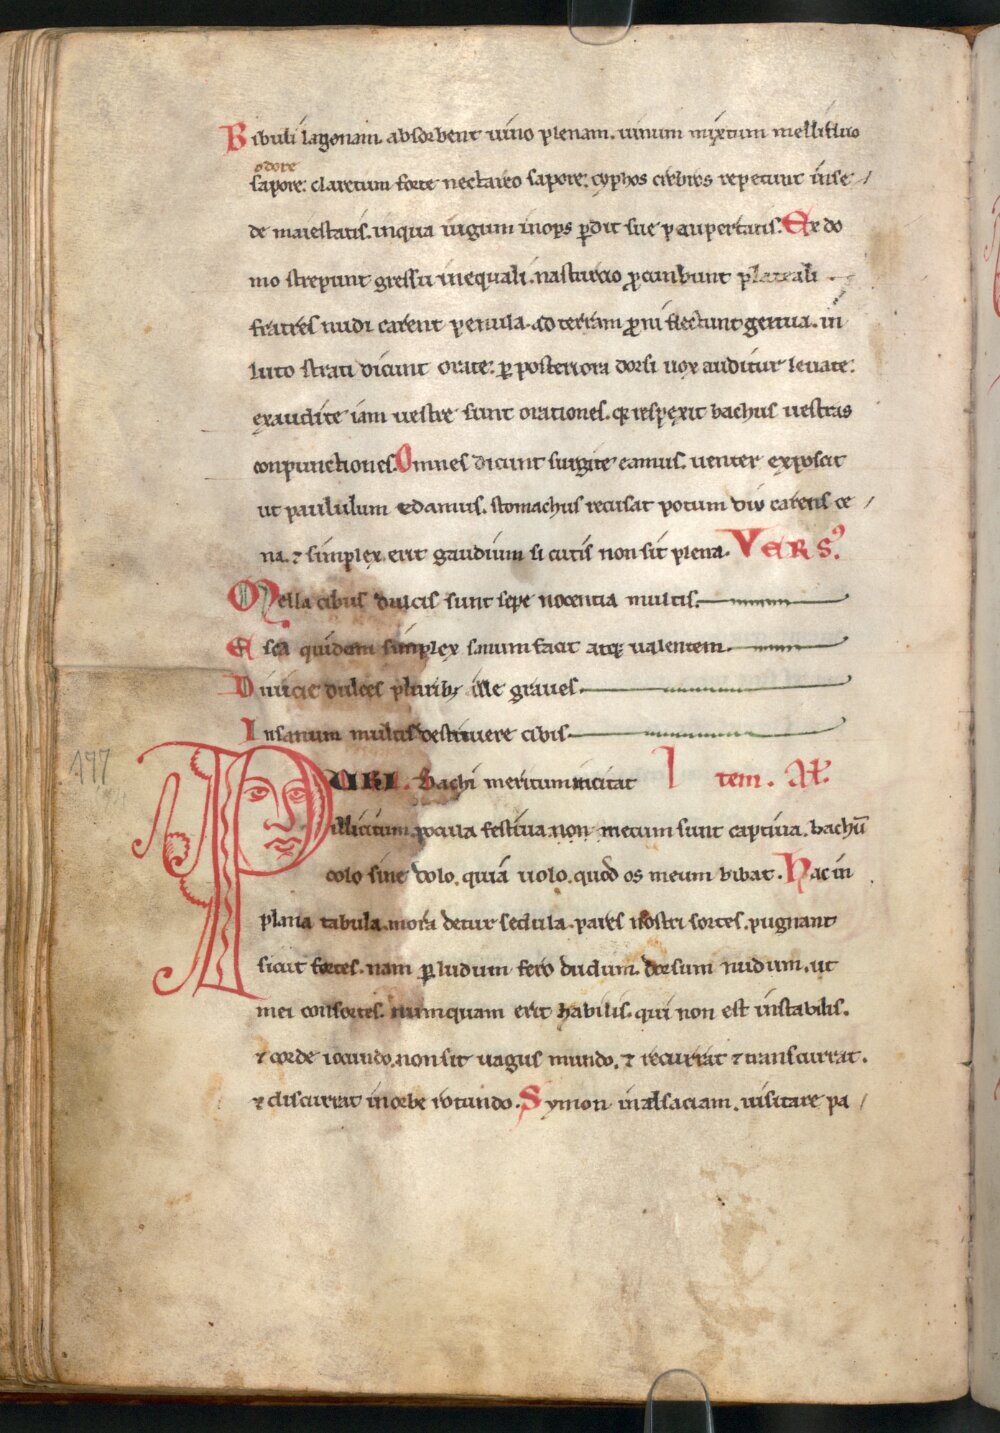 Bibuli lagenam absorbent uino plenam. uinum mixtum mellifluo
odore
sapore: claretum forte nectareo sapore: cyphos crebros repetunt in se
de maiestatis. in qua iugum inops perdit sue paupertatis. Ex do
mo strepunt gressu inequali. nasturcio procumbunt plateali
fratres nudi carent penula. ad terram proni flectunt genua. in
luto strati dicunt orate: per posteriora dorsi uox auditur leuate:
exaudite iam uestre sunt orationes. quia respexit bachus uestras
conpunctiones. Omnes dicunt surgite eamus. uenter exposcit
ut paululum edamus. stomachus recusat potum diu carens ce
na. & simplex erit gaudium si cutis non sit plena. VERS9
Mella cibus dulcis sunt sepe nocentia multis.
Esca quidem simplex sanum facit atque ualentem
Diuicie dulces pluribus ille graues.
Insanum multis destruere cibis
497
PURI Bachi meritum incitat Item. Al.
illicitum. pocula festiua non mecum sunt captiua. bachum
colo sine dolo. quia uolo. quod os meum bibat. Hac in
plana tabula. mora detur sedula. pares nostri sortes. pugnant
sicut fortes. nam per ludum fero dudum. dorsum nudum. ut
mei consortes. numquam erit habilis. qui non est instabilis.
& corde iocundo. non sit uagus mundo. & recurrat & transcurrat.
& discurrat in orbe rotundo. Symon in alsaciam. uisitare pa